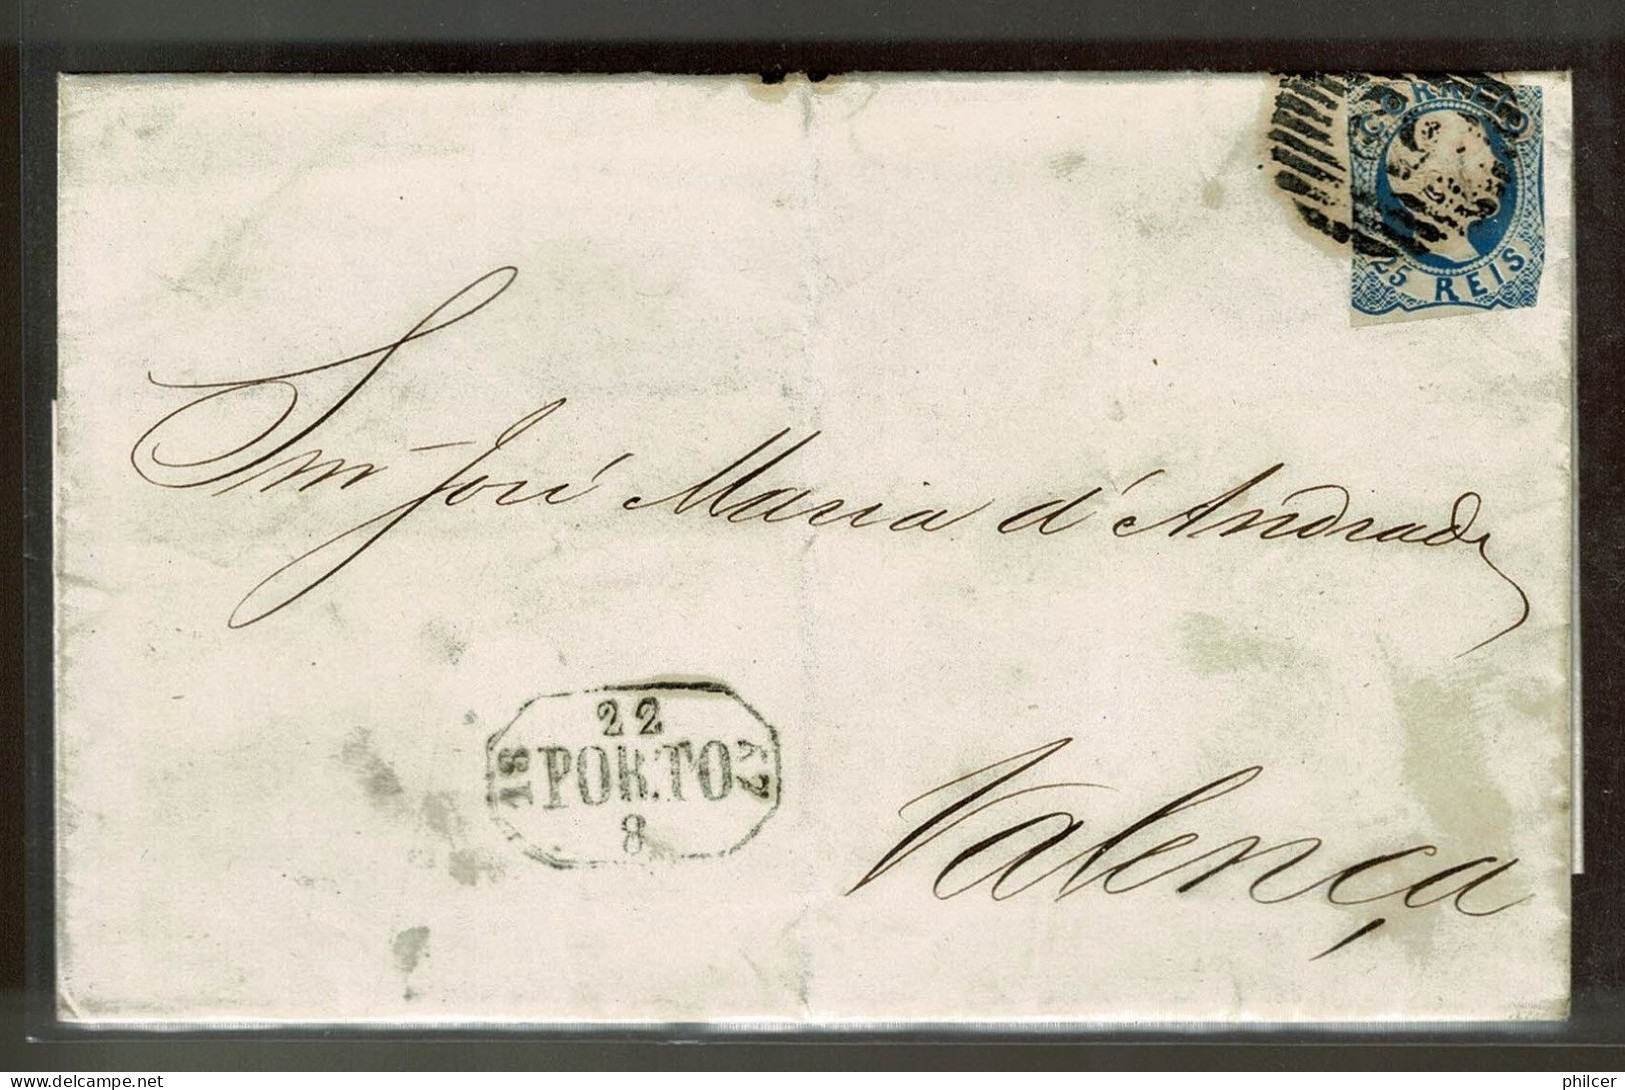 CORREO
25 REIS
Snr José Maria d'Andrade
22
18 PORTO 57
8
Valença
delcampe.net
philcer